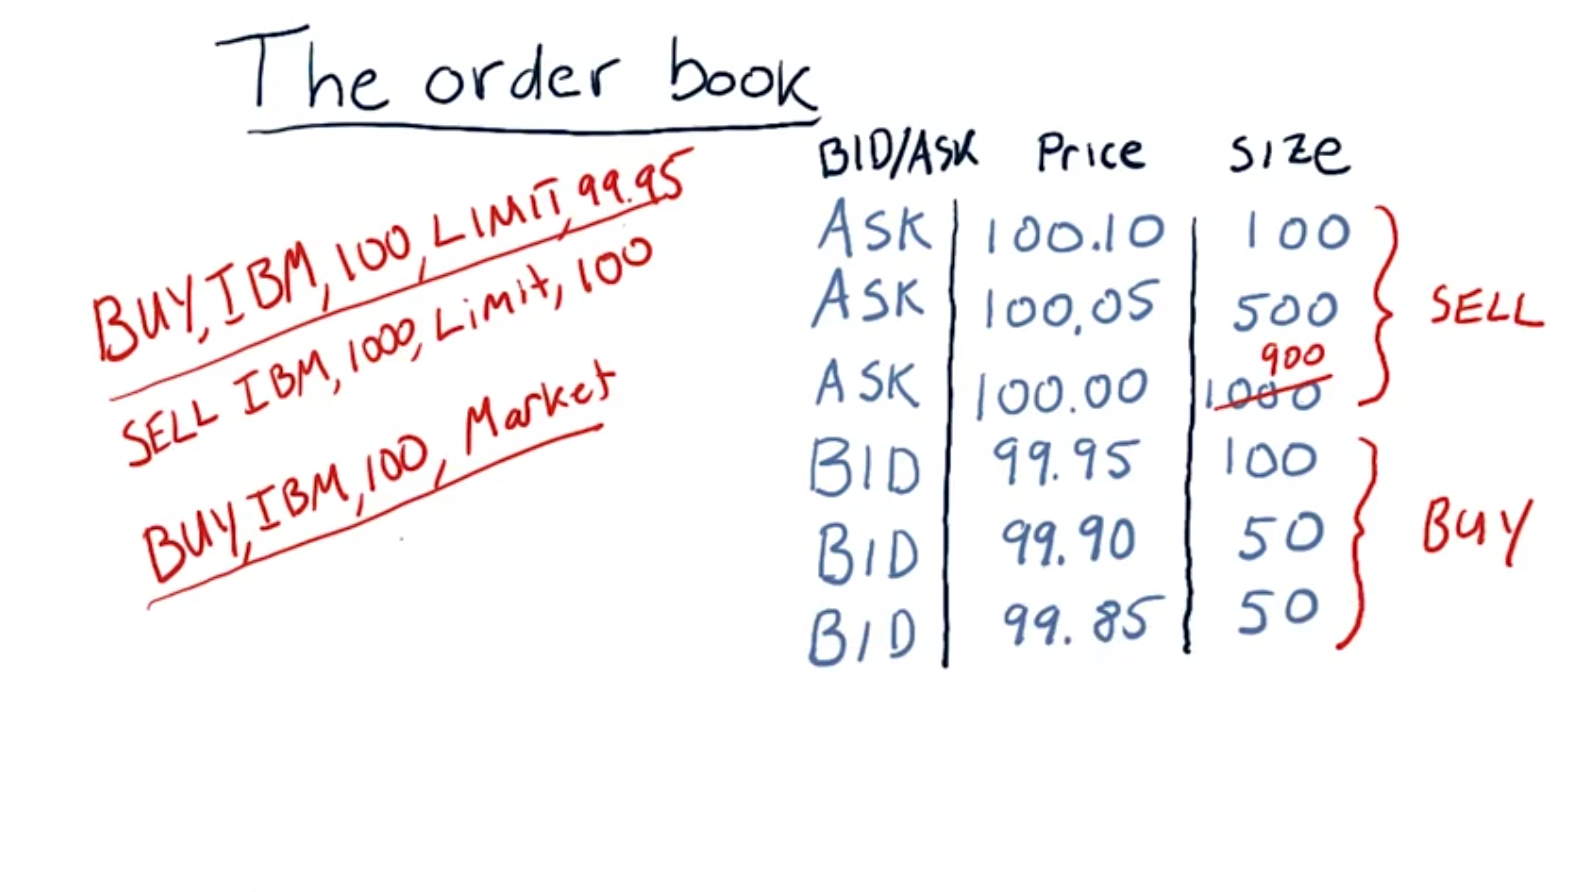 The order book
BUY, IBM, 100, LIMIT, 99.95
SELL IBM, 1000, Limit, 100
BUY, IBM, 100, Market
BID/ASK Price SIZE
ASK 100.10 100
ASK 100.05 500
900
ASK 100.00 1000
BID 99.95 100
BID 99.90 50
BID 99.85 50
SELL
BUY